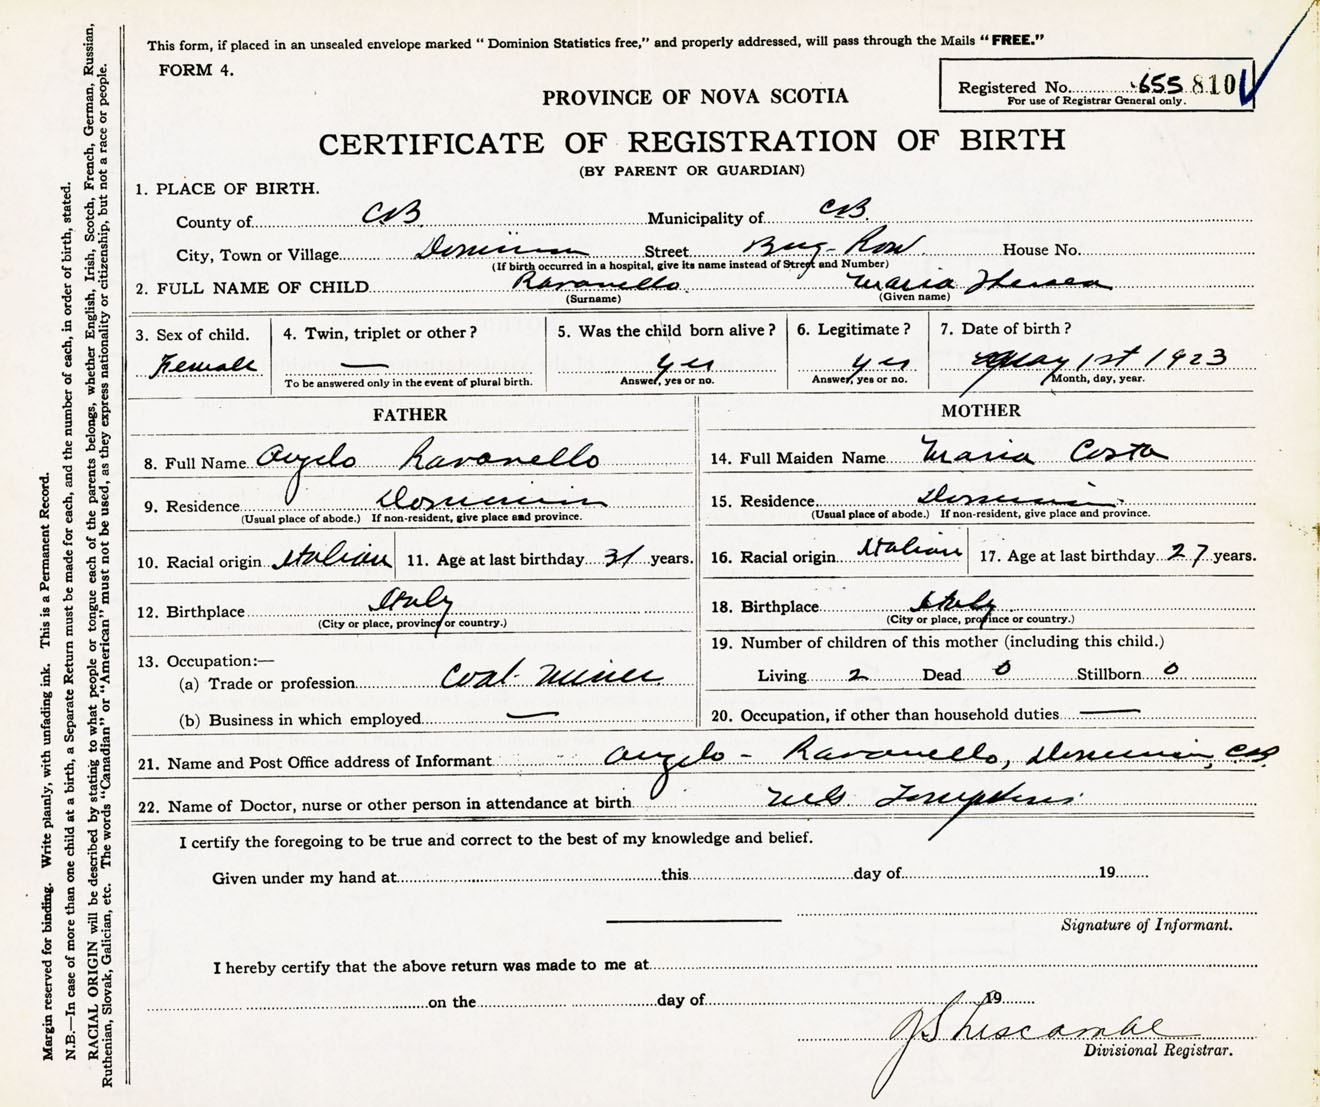 This form, if placed in an unsealed envelope marked " Dominion Statistics free," and properly addressed, will pass through the Mails " FREE."
FORM 4.
Registered No. 655 810
For use of Registrar General only.
PROVINCE OF NOVA SCOTIA
CERTIFICATE OF REGISTRATION OF BIRTH
(BY PARENT OR GUARDIAN)
1. PLACE OF BIRTH.
County of C.B. Municipality of C.B.
City, Town or Village Dominion Street Bug-Row House No.
(If birth occurred in a hospital, give its name instead of Street and Number)
2. FULL NAME OF CHILD Ravanello Maria Theresa
(Surname) (Given name)
3. Sex of child. 4. Twin, triplet or other? 5. Was the child born alive? 6. Legitimate? 7. Date of birth?
Female — Yes Yes May 1st 1923
To be answered only in the event of plural birth. Answer, yes or no. Answer, yes or no. Month, day, year.
FATHER
8. Full Name Angelo Ravanello
9. Residence Dominion
(Usual place of abode.) If non-resident, give place and province.
10. Racial origin Italian 11. Age at last birthday 31 years.
12. Birthplace Italy
(City or place, province or country.)
13. Occupation:—
(a) Trade or profession Coal Miner
(b) Business in which employed —
MOTHER
14. Full Maiden Name Maria Costa
15. Residence Dominion
(Usual place of abode.) If non-resident, give place and province.
16. Racial origin Italian 17. Age at last birthday 27 years.
18. Birthplace Italy
(City or place, province or country.)
19. Number of children of this mother (including this child.)
Living 2 Dead 0 Stillborn 0
20. Occupation, if other than household duties —
21. Name and Post Office address of Informant Angelo - Ravanello, Dominion, C.B.
22. Name of Doctor, nurse or other person in attendance at birth
I certify the foregoing to be true and correct to the best of my knowledge and belief.
Given under my hand at this day of 19
Signature of Informant.
I hereby certify that the above return was made to me at
on the day of 19
Divisional Registrar.
Margin reserved for binding. Write plainly, with unfading ink. This is a Permanent Record.
N.B.—In case of more than one child at a birth, a Separate Return must be made for each, and the number of each, in order of birth, stated.
RACIAL ORIGIN will be described by stating to what people or tongue each of the parents belongs, whether English, Irish, Scotch, French, German, Russian,
Ruthenian, Slovak, Galician, etc. The words "Canadian" or "American" must not be used, as they express nationality or citizenship, but not a race or people.